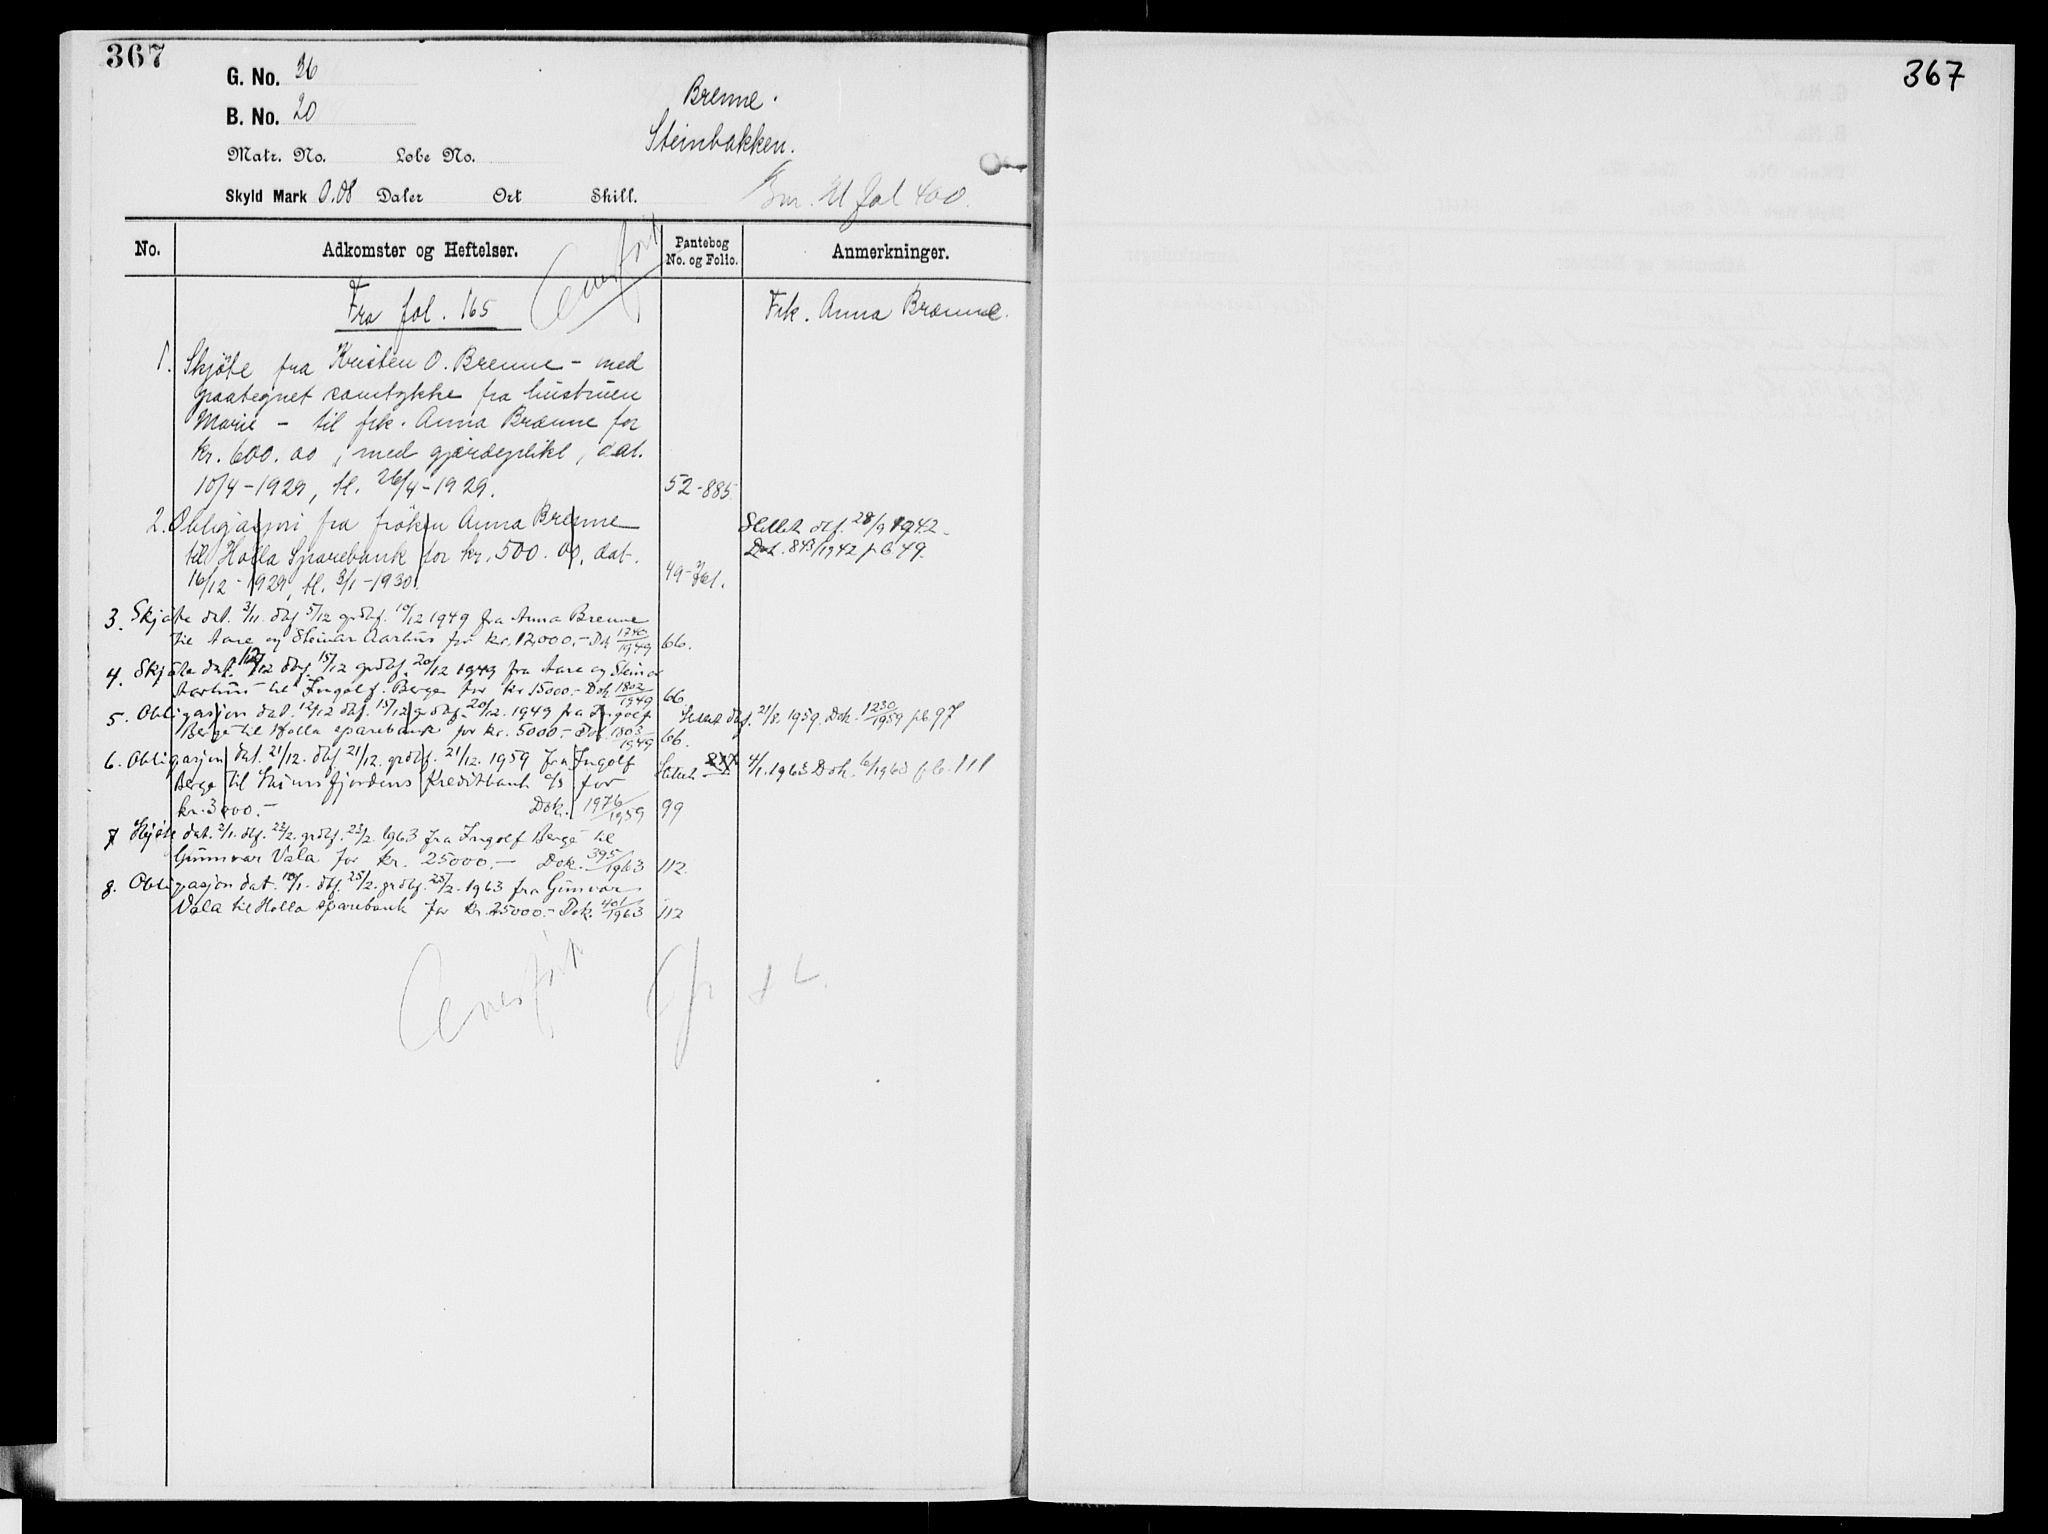 367
G. No. 36
B. No. 20
Matr. No. Løbe No.
Skyld Mark 0.08 Daler Ort Skill.
Brenne.
Steinbakken.
Bnr. 21 fol 400.
No. Adkomster og Heftelser. Pantebog No. og Folio. Anmerkninger.
Overført
Fra fol. 165
Frk. Anna Brenne.
1. Skjøte fra Kristen O. Brenne – med
paategnet samtykke fra hustruen
Marie – til frk. Anna Brenne for
kr. 600.00, med gjærdeplikt, dat.
10/4-1929, tl. 26/4-1929. 52-885.
2. Obligasjon fra frøken Anna Brenne
til Holla Sparebank for kr. 500.00, dat.
16/12-1929, tl. 3/1-1930. 49-
Slettet dbf. 28/9 1942.
Dok. 843/1942 pb 49.
3. Skjøte dat. 3/11. dbf 5/12 grdbf. 10/12 1949 fra Anna Brenne
til Aare og Steinar Aarhus for kr. 12000.- Dok 1740/1949 66.
4. Skjøte dat. 12/12 dbf. 15/12 grdbf. 20/12 1949 fra Aare og Steinar
Aarhus til Ingolf Berge for kr 15000.- Dok 1802/1949 66
5. Obligasjon dat. 12/12 dbf. 15/12 grdbf. 20/12. 1949 fra Ingolf
Berge til Holla sparebank for kr. 5000.- Dok. 1803/1949 66.
Slettet dbf. 21/8. 1959. Dok. 1230/1959 pb 97
6. Obligasjon dat. 21/12. dbf 21/12. grdbf. 21/12. 1959 fra Ingolf
Berge til Skiensfjordens Kreditbank A/S for
kr. 3000.- Dok. 1976/1959 99
Slettet 4/1. 1963 Dok. 6/1963 pb. 111
7 Skjøte dat. 2/1. dbf. 22/2. grdbf. 23/2. 1963 fra Ingolf Berge til
Gunnvar Vala for kr. 25000.- Dok. 395/1963 112.
8. Obligasjon dat. 10/1. dbf. 25/2. grdbf. 25/2. 1963 fra Gunvar
Vala til Holla sparebank for kr. 25000.- Dok. 401/1963 112
Overført
367